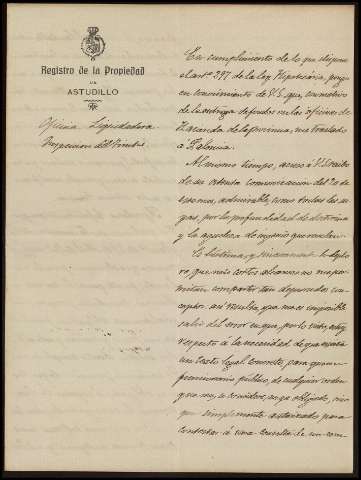 Registro de la Propiedad
DE
ASTUDILLO
Oficina Liquidadora
Inspección del Timbre
En cumplimiento de lo que dispone
el artº 297 de la ley Hipotecaria, pongo
en conocimiento de V.S. que, con motivo
de la entrega de fondos en las oficinas de
Hacienda de la provincia, me traslado
á Palencia.
Al mismo tiempo, acuso á V.S. recibo
de su atenta comunicación del 20 de
ese mes, admirable, como todas las su-
yas, por la profundidad de doctrina
y la agudeza de ingenio que revelan.
Es lástima, y sinceramente lo deplo-
ro, que mis cortos alcances no me per-
mitan compartir tan depurados con-
ceptos: así resulta, que me es imposible
salir del error en que, por lo visto, estoy
respecto á la necesidad de que exista
un texto legal concreto, para que un
funcionario público, de cualquier orden
que sea, se considere, no ya obligado, sino
que simplemente autorizado para
contestar á una consulta de un com-